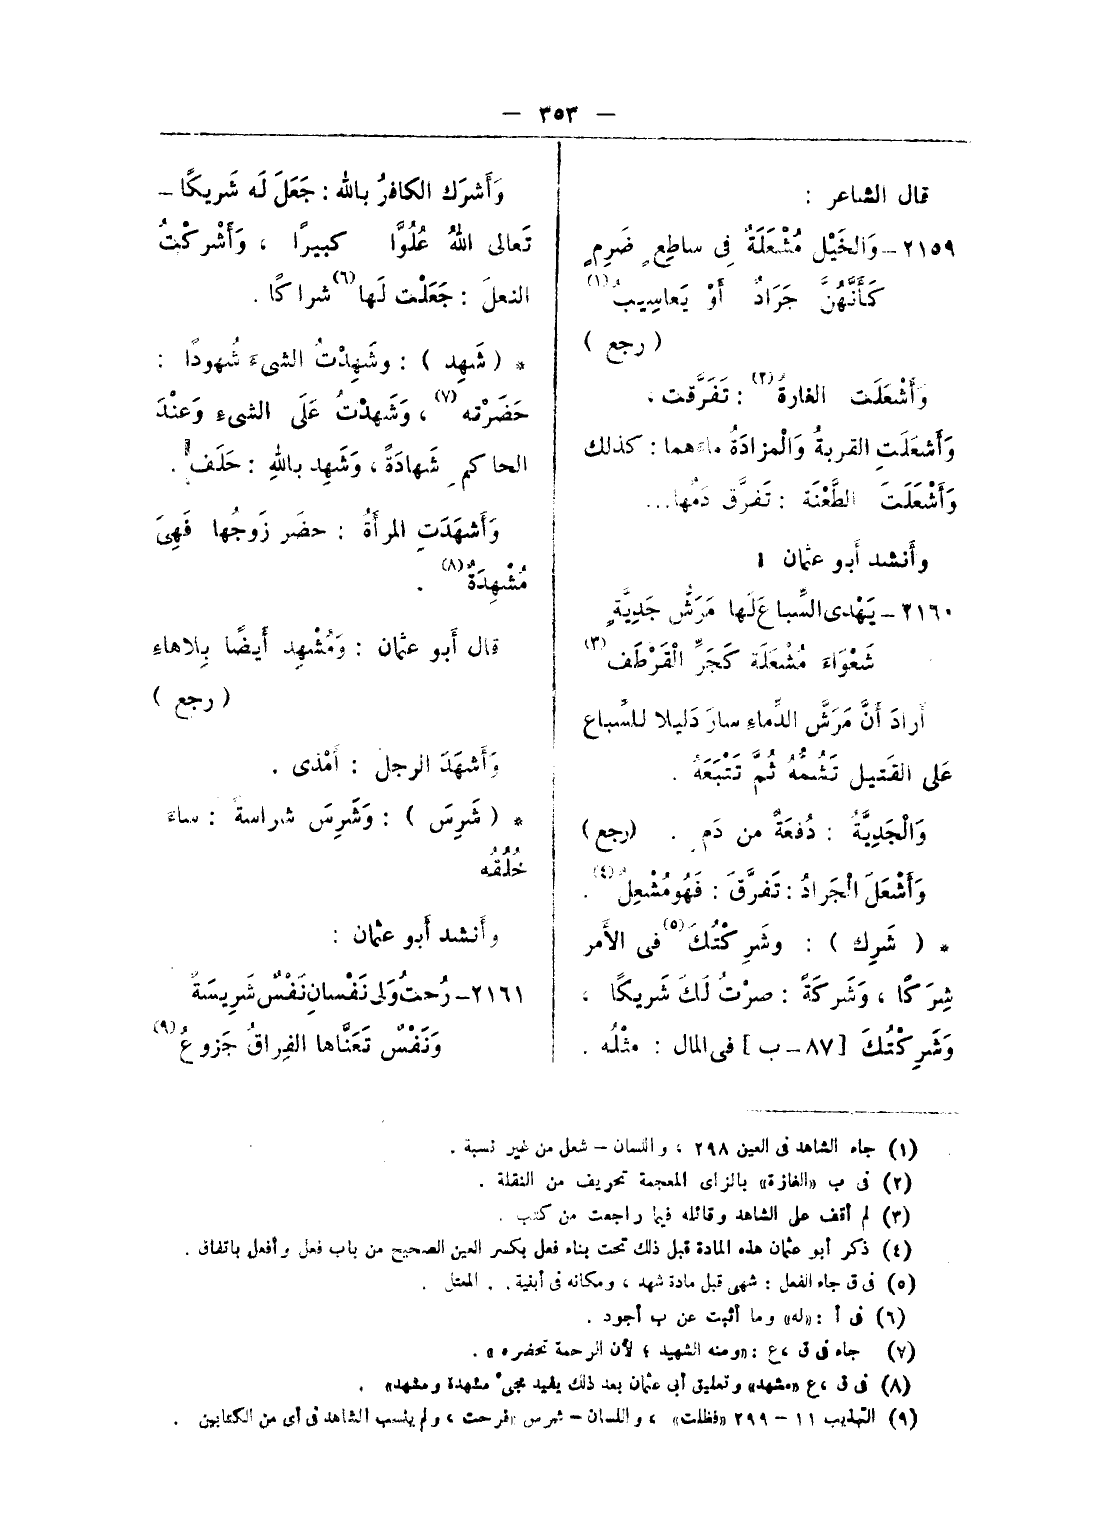 — ٣٥٣ —
قال الشاعر :
٢١٥٩ – وَالخَيْل مُشْعَلَةٌ فى ساطِعٍ ضَرِمٍ
كَأَنَّهُنَّ جَرَادٌ أَوْ يَعاسِيبُ(١)
( رجع )
وَأَشْعَلَت الغارةُ(٢) : تَفَرَّقت ،
وَأَشعَلَتِ القربةُ وَالْمزادَةُ ماءهما : كذلك
وَأَشْعَلَتَ الطَّعْنَة : تَفرَّق دَمُها...
وأَنشد أَبو عثمان :
٢١٦٠ – يَهْدى السِّباعَ لَها مَرَشُّ جَدِيَّةٍ
شَعْوَاءَ مُشْعَلَة كَجَرِّ الْقَرْطَف(٣)
أَرادَ أَنَّ مَرَشَّ الدِّماءِ سارَ دَليلا للسِّباع
عَلى القَتيل تَشُمُّهُ ثُمَّ تَتْبَعَهُ .
وَالْجَدِيَّةُ : دُفعَةٌ من دَمٍ . (رجع)
وَأَشْعَلَ الْجَرادُ : تَفرَّقَ : فَهُو مُشْعِلٌ(٤) .
* ( شَرِك ) : وشَرِكْتُكَ(٥) فى الأَمر
شِرَكًا ، وَشَركَةً : صرْتُ لَكَ شَريكًا ،
وَشَرِكْتُكَ [ ٨٧ – ب ] فى المال : مثْلُه .
وَأَشرَك الكافرُ بالله : جَعَلَ لَه شَريكًا –
تَعالى اللهُ عُلُوًّا كبيرًا ، وَأَشْركْتُ
النعلَ : جَعَلْت لَها(٦) شراكًا .
* ( شَهِد ) : وشَهِدْتُ الشىءَ شُهودًا :
حَضَرْته(٧) ، وَشَهدْتُ عَلَى الشىءِ وَعنْدَ
الحاكمِ شَهادَةً ، وَشَهِد باللهِ : حَلَف .
وَأَشهَدَتِ المرأَةُ : حضَر زَوجُها فَهِىَ
مُشْهِدَةٌ(٨) .
قال أَبو عثمان : وَمُشْهِد أَيضًا بِلاهاءٍ
( رجع )
وَأَشهَدَ الرجل : أَمْذى .
* ( شَرِسَ ) : وَشَرِسَ شراسةً : ساءَ
خُلُقُه
وأَنشد أَبو عثمان :
٢١٦١ – رُحتُ وَلى نَفْسانِ نَفْسٌ شَرِيسَةٌ
وَنَفْسٌ تَعَنَّاها الفِراقُ جَزوعُ(٩)
(١) جاء الشاهد فى العين ٢٩٨ ، واللسان – شعل من غير نسبة .
(٢) فى ب «الغازة» بالزاى المعجمة تحريف من النقلة .
(٣) لم أقف على الشاهد وقائله فيما راجعت من كتب .
(٤) ذكر أبو عثمان هذه المادة قبل ذلك تحت بناء فعل بكسر العين الصحيح من باب فعل وأفعل باتفاق .
(٥) فى ق جاء الفعل : شهى قبل مادة شهد ، ومكانه فى أبنية . . المعتل .
(٦) فى أ : «له» وما أثبت عن ب أجود .
(٧) جاء فى ق ، ع : «ومنه الشهيد ؛ لأن الرحمة تحضره» .
(٨) فى ق ، ع «مشهد» وتعليق أبى عثمان بعد ذلك يفيد مجىء مشهدة ومشهد» .
(٩) التهذيب ١١ – ٢٩٩ «فظلت» ، واللسان – شرس «فرحت ، ولم ينسب الشاهد فى أى من الكتابين .